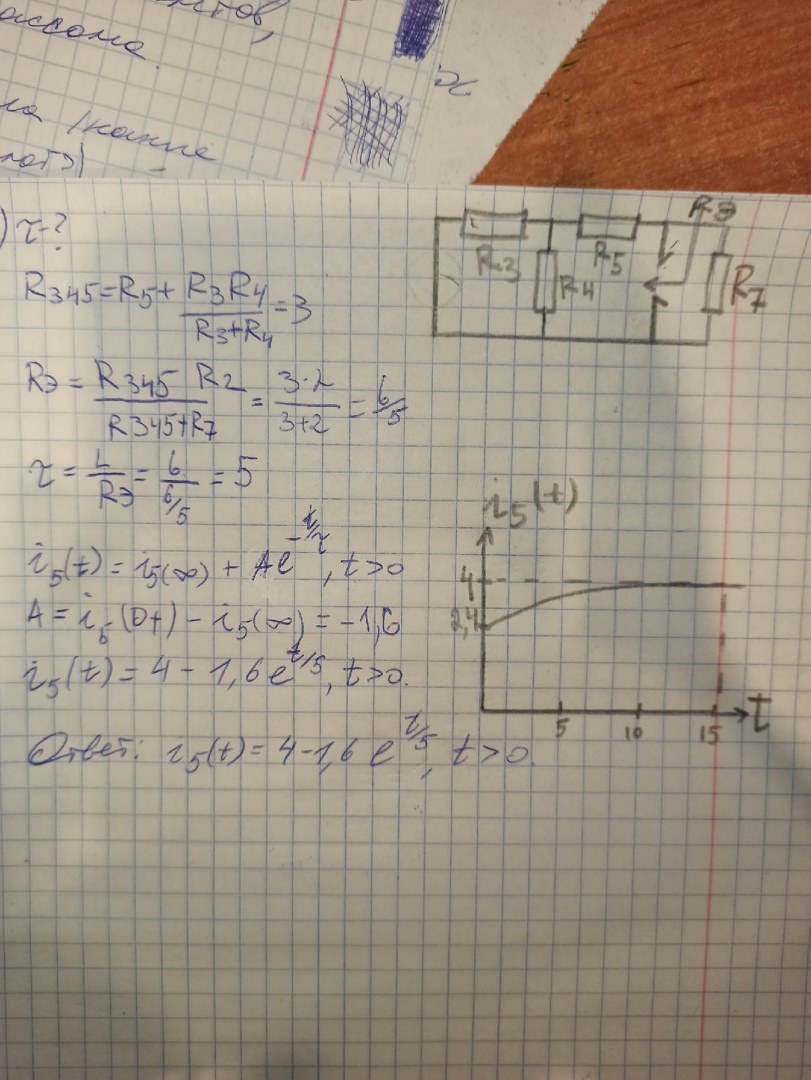 ассома
ла
) τ-?
R345 = R5 + R3R4 / R3+R4 = 3
Rэ = R345 R2 / R345+R7 = 3·2 / 3+2 = 6/5
τ = L / Rэ = 6 / 6/5 = 5
i5(t) = i5(∞) + Ae^-t/τ, t>0
A = i5(0+) - i5(∞) = -1,6
i5(t) = 4 - 1,6 e^t/5, t>0.
Ответ: i5(t) = 4-1,6 e^t/5, t>0.
Rэ
R3
R5
R4
R7
i5(t)
4
2,4
5
10
15
t